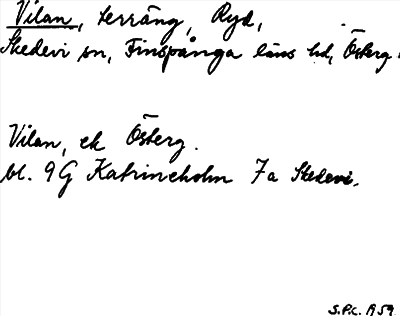 Vilan, terräng, Ryd,
Skedevi sn, Finspånga läns hd, Österg.
Vilan, ek Österg.
bl. 9G Katrineholm 7a Skedevi.
S.P.C. 1959